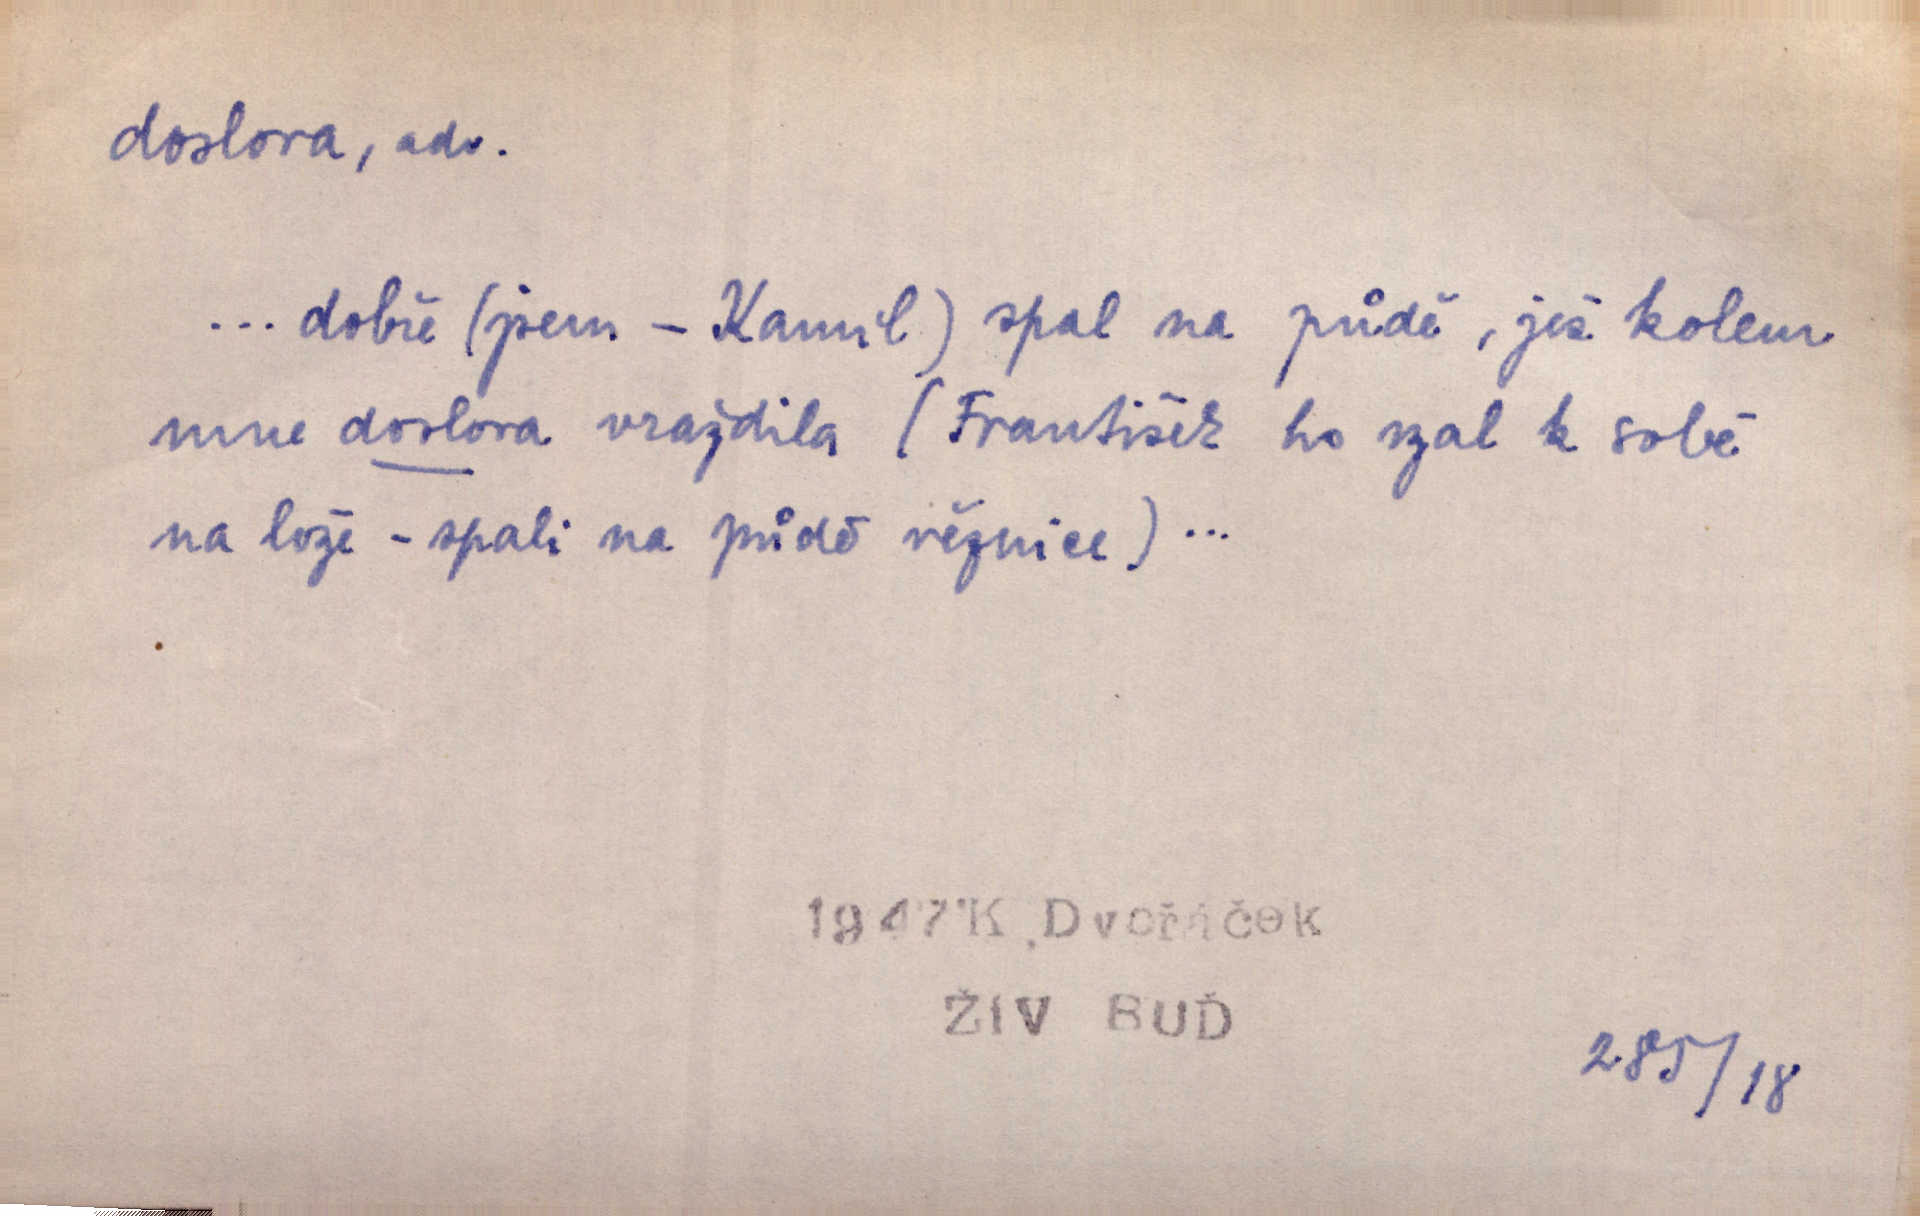 doslova, adv.
... dobře (jsem - Kamil) spal na půdě, jež kolem
mne doslova vraždila (František ho vzal k sobě
na lože - spali na půdě věznice) ...
1947 K.Dvořáček
ŽIV BUĎ
285/18